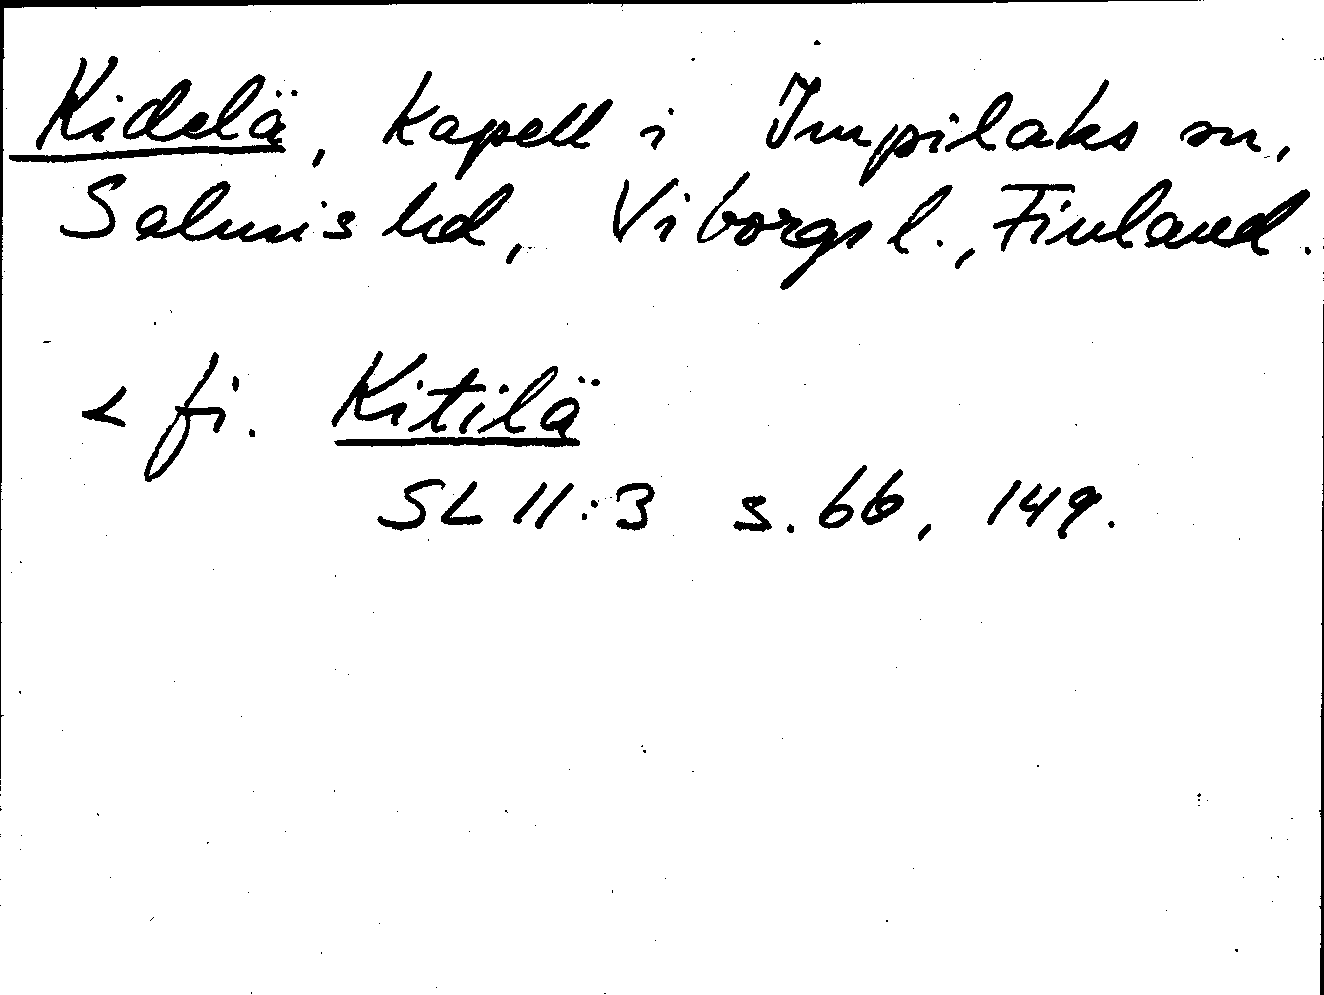 Kidelä, kapell i Impilaks sn,
Salmis hd, Viborgs l., Finland.
< fi. Kitilä
SL 11:3 s. 66, 149.